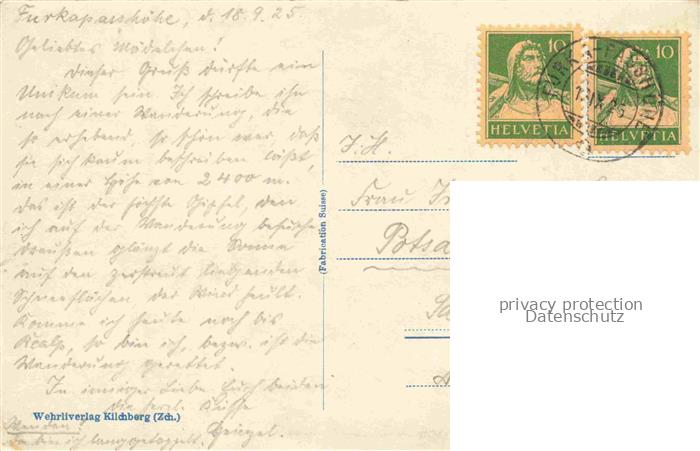 Furkapasshöhe, d. 18.9.25
Geliebtes Mädelchen!
Dieser Gruß dürfte ein
Unikum sein. Ich schreibe ihn
nach einer Wanderung, die
so erhebend, so schön war, daß
sie sich kaum beschreiben läßt,
in einer Höhe von 2400 m.
Das ist der höchste Gipfel, den
ich auf der Wanderung besuche
Draußen glänzt die Sonne
auf den zerstreut liegenden
Schneeflächen der Wind heult.
Komme ich heute noch bis
Realp, so bin ich, bezw. ist die
Wanderung gerettet.
In inniger Liebe Euch beiden
die herzl. Küsse
Wehrliverlag Kilchberg (Zch.)
Wenden!
Da bin ich langgetappelt.
(Fabrication Suisse)
10
HELVETIA
10
HELVETIA
I.H.
Frau
Potsd
privacy protection
Datenschutz